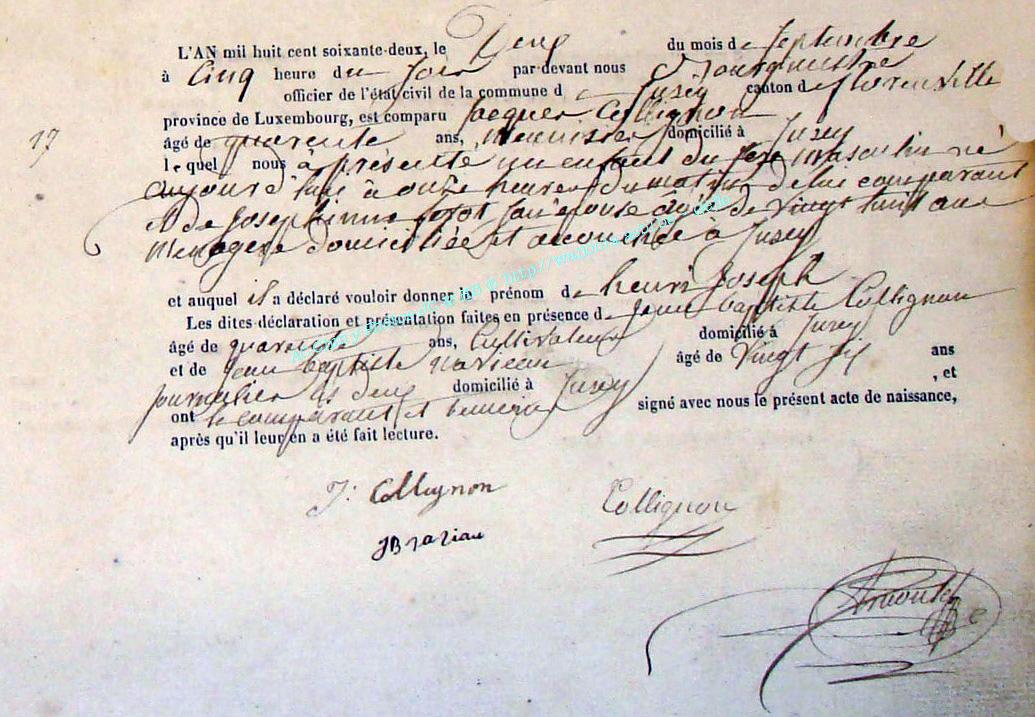 L'AN mil huit cent soixante-deux, le Deux du mois de Septembre
à Cinq heure du Soir par-devant nous Bourgmestre
officier de l'état civil de la commune de Jusey canton de florenville
province de Luxembourg, est comparu Jacques Collignon
17
âgé de quarente ans, Menuisier domicilié à Jusey
lequel nous à présenté un enfant du sexe masculin né
aujourd'hui à onze heures du matin de lui comparant
& de Josephinne son épouse agée de vingt huit ans
Ménagère domiciliée et accouchée à Jusey
et auquel il a déclaré vouloir donner le prénom de henri Joseph
Les dites déclaration et présentation faites en présence de Jean baptiste Collignon
âgé de quarente ans, Cultivateur domicilié à Jusey
et de Jean baptiste âgé de Vingt six ans
journalier domicilié à Jusey , et
ont le comparant et temoins signé avec nous le présent acte de naissance,
après qu'il leur en a été fait lecture.
J. Collignon Collignon